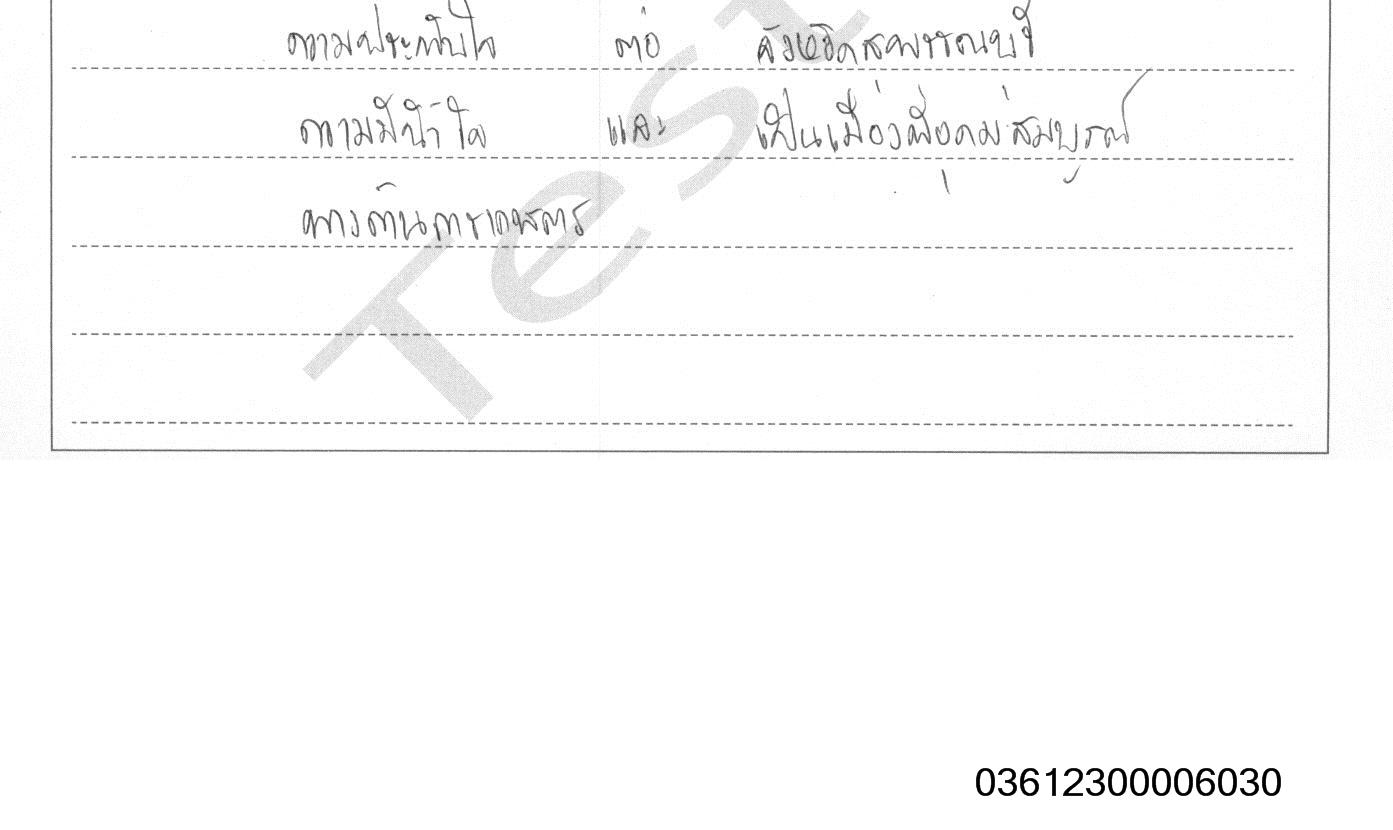 ความประทับใจ ต่อ จังหวัดสุพรรณบุรี
ความมีน้ำใจ และ เป็นเมืองที่อุดมสมบูรณ์
ทางด้านการเกษตร
Test
03612300006030